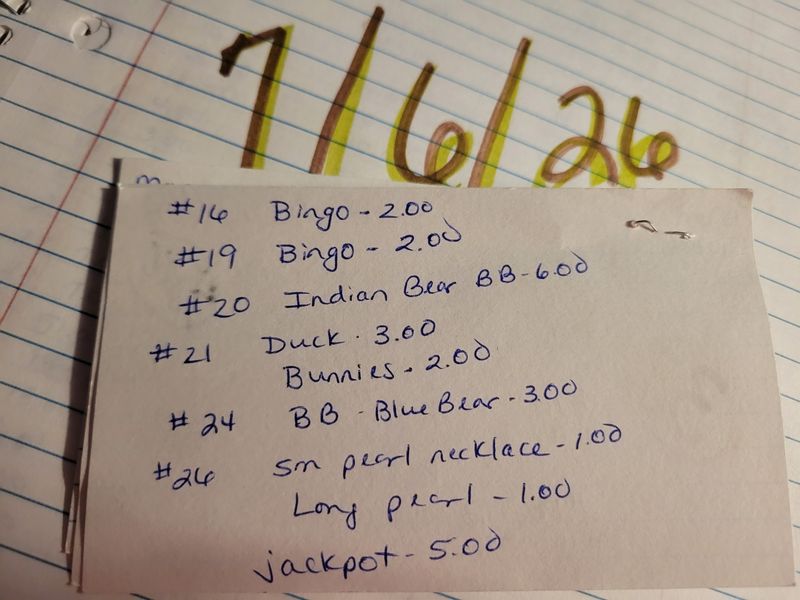 7/6/26
#16 Bingo - 2.00
#19 Bingo - 2.00
#20 Indian Bear BB - 6.00
#21 Duck - 3.00
Bunnies - 2.00
#24 BB - Blue Bear - 3.00
#26 sm pearl necklace - 1.00
Long pearl - 1.00
jackpot - 5.00